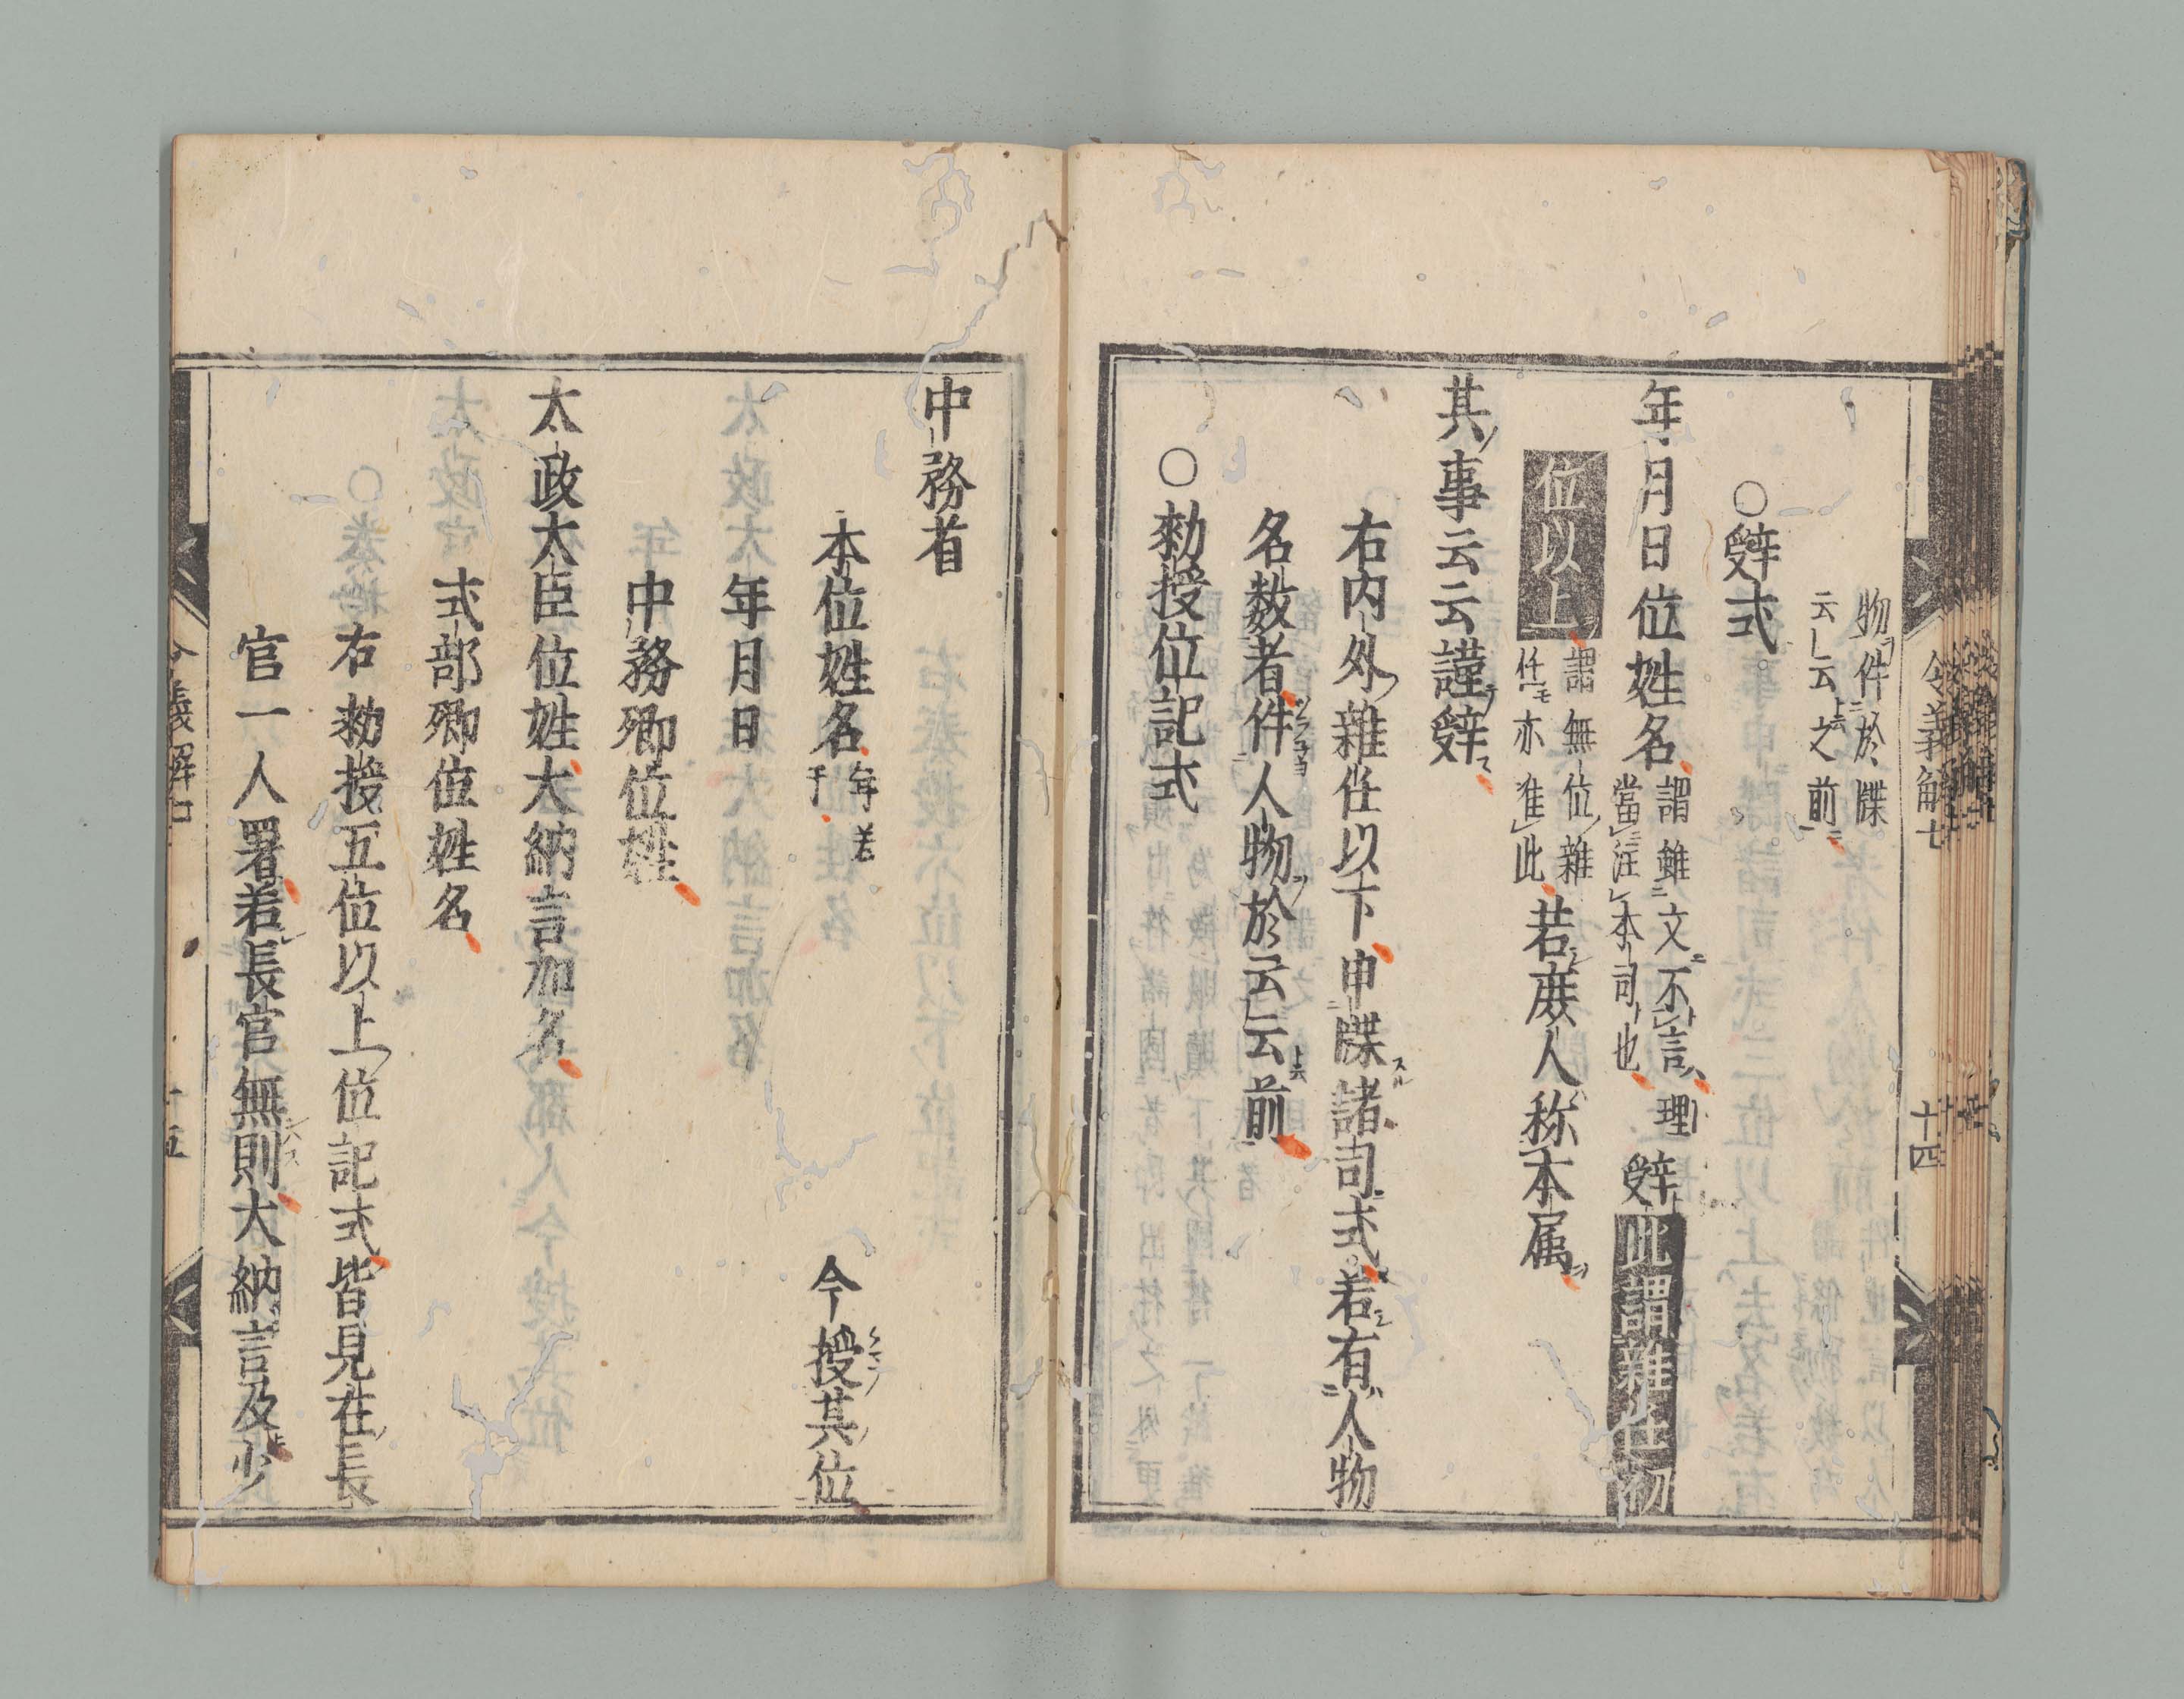 物件於牒
云云之前
○辤式
年月日位姓名謂雖文不言理
當注本司也辤此謂雜任初
位以上謂無位雜
任亦准此若庶人称本属
其事云云謹辤
右内外雜任以下申牒諸司式若有人物
名数者件人物於云云前
○勑授位記式
令義解七
十四
中務省
本位姓名年若
干今授其位
年月日
中務卿位姓
太政大臣位姓大納言加名
式部卿位姓名
右勑授五位以上位記式皆見在長
官一人署若長官無則大納言及少